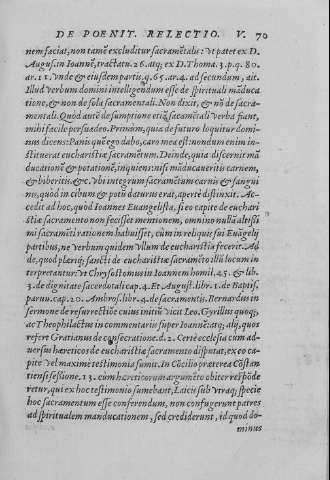 DE POENIT. RELECTIO. V. 70
nem faciat, non tamē excluditur sacramētalis: vt patet ex D.
Augus. in Ioannē, tractatu. 26. atq; ex D. Thoma. 3. p. q. 80.
ar. 11. Vnde & eiusdem partis, q. 65. ar. 4. ad secundum, ait.
Illud verbum domini intelligendum esse de spirituali māduca
tione, & non de sola sacramentali. Non dixit, & nō de sacra-
mentali. Quòd autē de sumptione etiā sacamētali verba fiant,
mihi facile persuadeo. Primùm, quia de futuro loquitur domi
nus dicens: Panis quē ego dabo, caro mea est: nondum enim in-
stituerat eucharistiæ sacramētum. Deinde, quia discernit mā
ducationē & potationē, inquiens: nisi māducaueritis carnem,
& biberitis. &c. Vbi integrum sacramētum carnis & sangui
nis, quod in cibum & potū daturus erat, apertè distinxit. Ac-
cedit ad hoc, quòd Ioannes Euangelista, si eo capite de euchari
stiæ sacramento non fecisset mentionem, omnino nullā altissi
mi sacramēti rationem habuisset, cùm in reliquis sui Euāgelij
partibus, ne verbum quidem vllum de eucharistia fecerit. Ad
de, quòd pleriq; sancti de eucharistiæ sacramēto illū locum in
terpretantur: vt Chrysostomus in Ioannem homil. 45. & lib.
3. de dignitate sacerdotali cap. 4. Et August. lib. 1. de Baptis.
paruu. cap. 20. Ambros. lib. 4. de sacramentis. Bernardus in
sermone de resurrectiōe cuius initiū: vicit Leo. Cyrillus quoq;
ac Theophilactus in commentarijs super Ioannē: atq; alij, quos
refert Gratianus de consecratione. d. 2. Certè ecclesia cum ad-
uersus hæreticos de eucharistiæ sacramento disputat, ex eo ca
pite vel maximè testimonia sumit. In Cōcilio præterea Cōstan
tiensi sessione. 13. cùm hæreticorum argumēto obiter respōde
retur, qui ex hoc testimonio sumebant, Laicis sub vtraq; specie
hoc sacramentum esse conferendum, non confugerunt patres
ad spiritualem manducationem, sed crediderunt, id quod do-
minus